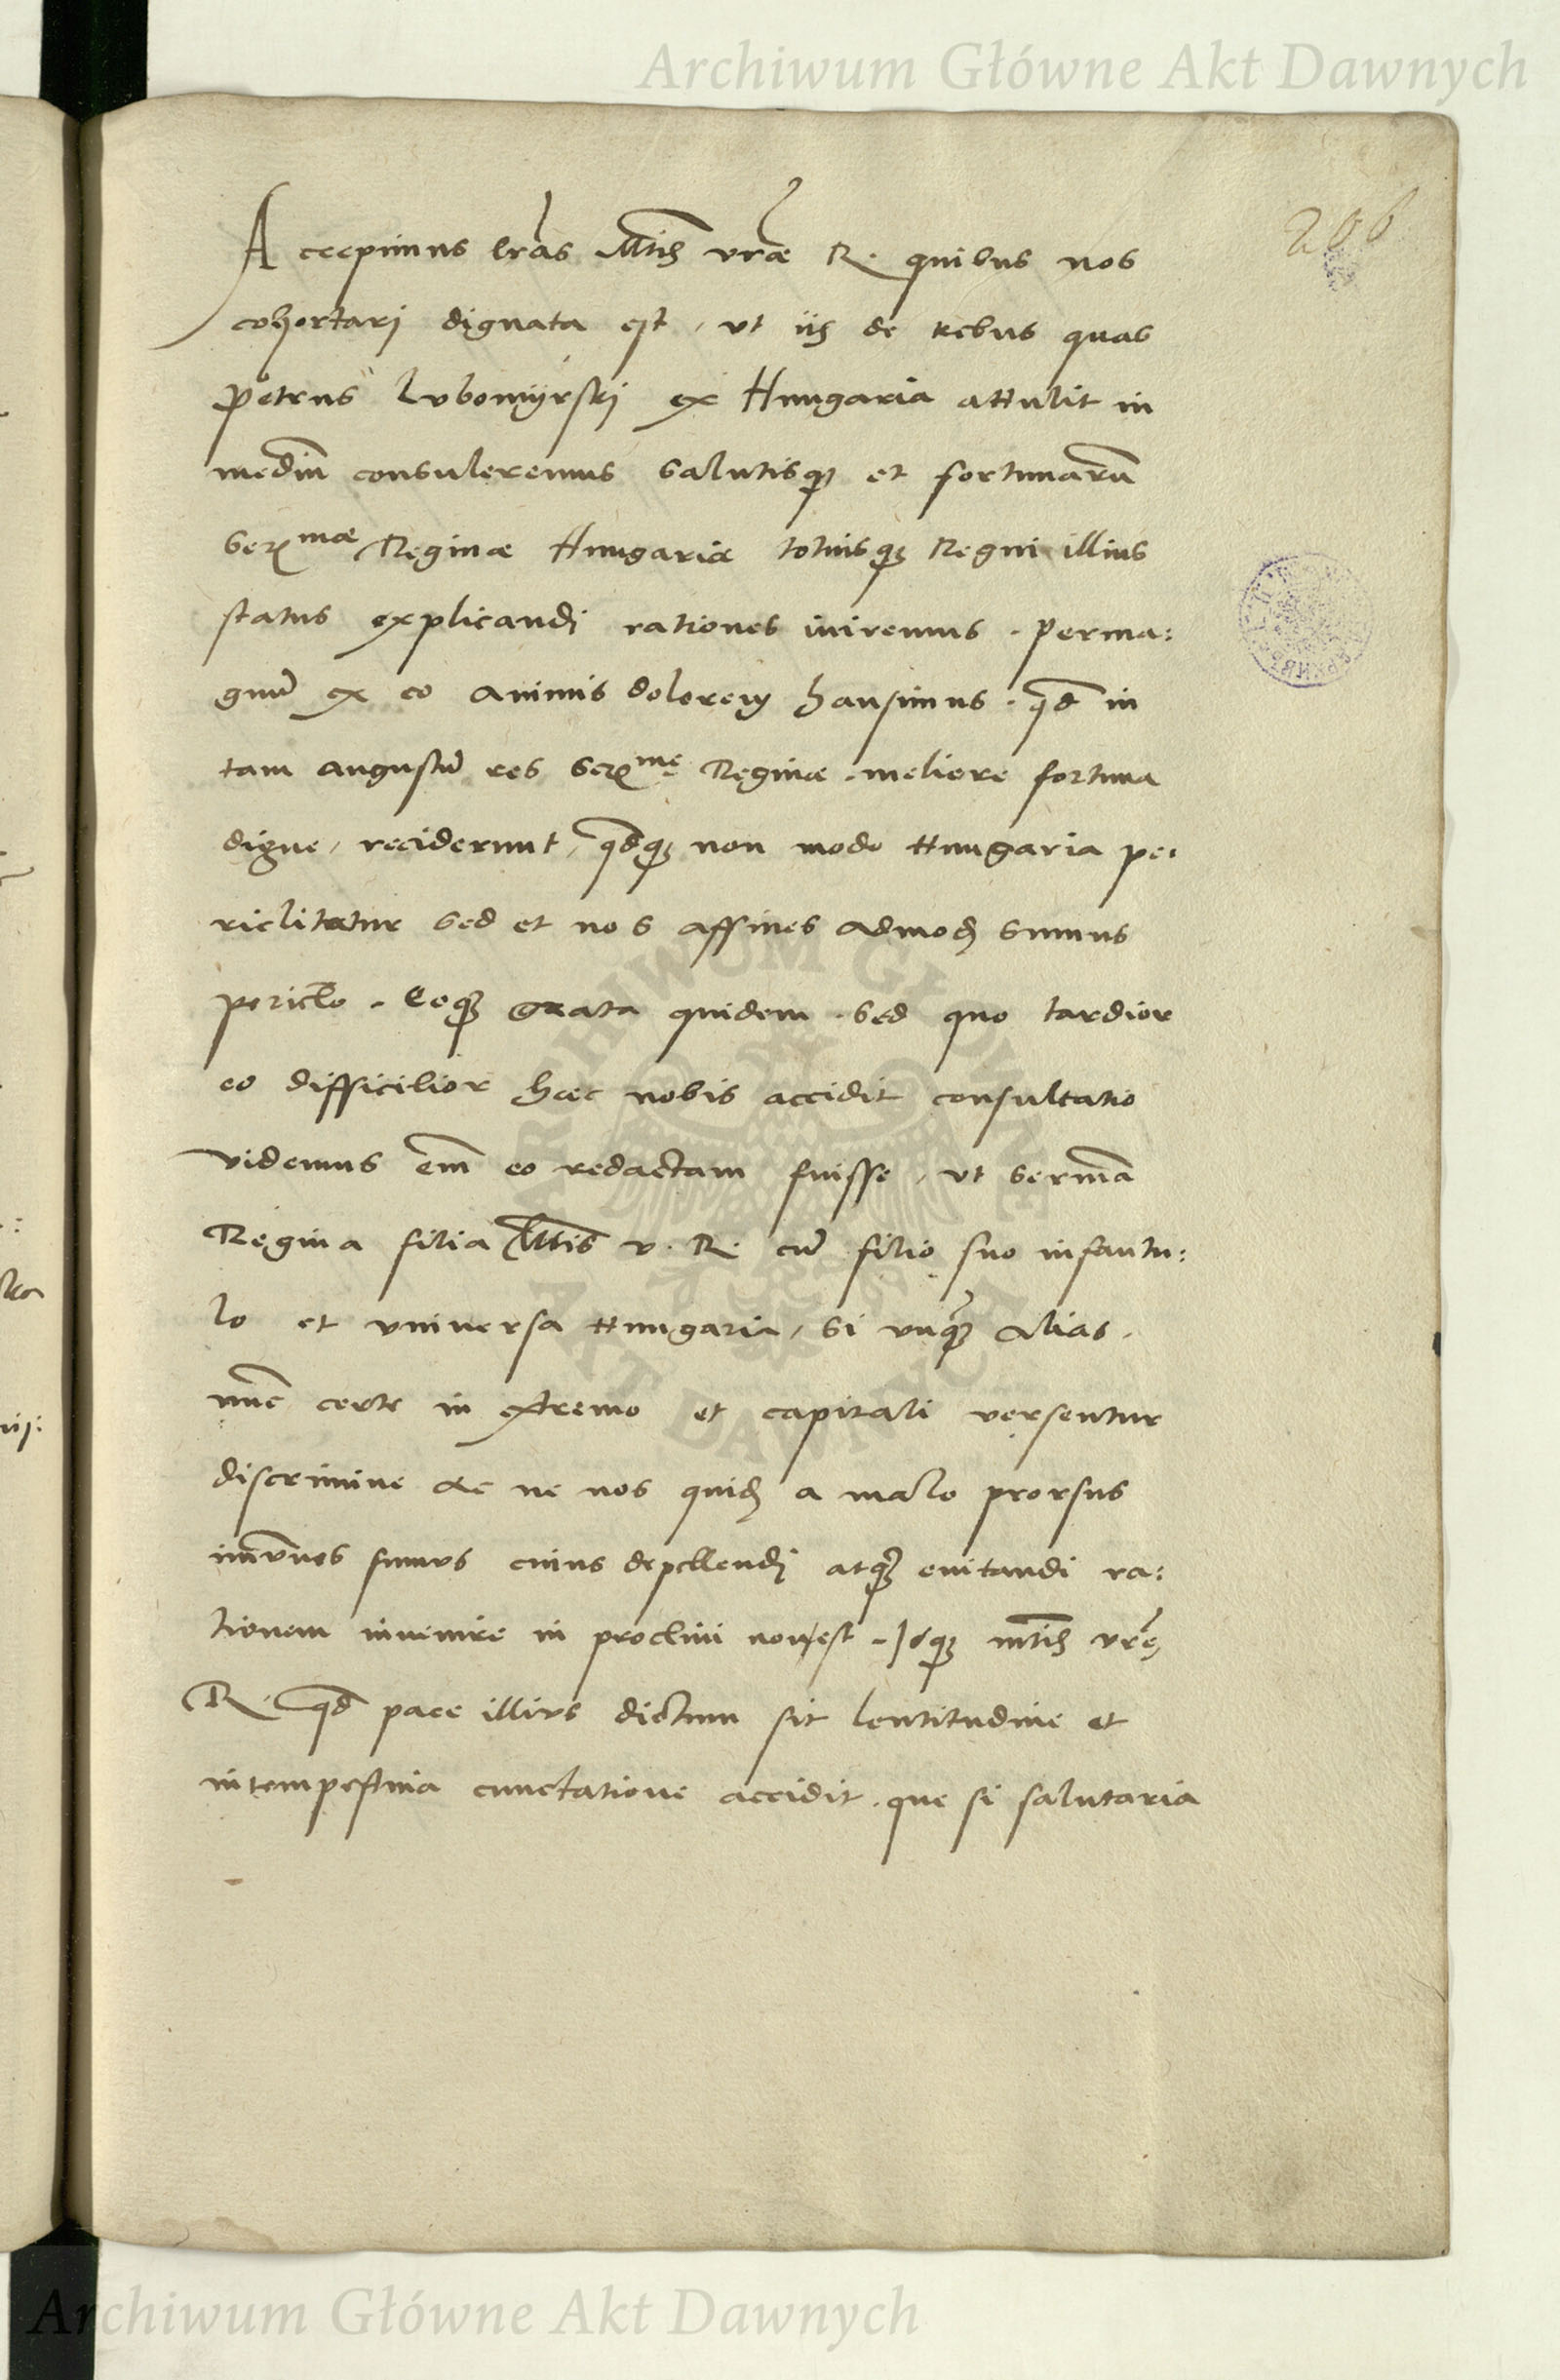 Archiwum Główne Akt Dawnych
206
Accepimus lr̃as Mtis vr̃æ R. quibus nos
cohortarj dignata est, vt iis de rebus quas
Petrus Lubomyrskj ex Hungaria attulit in
mediũ consuleremus salutisq; et fortunarũ
Serᵐæ Reginæ Hungariæ totiusq; Regni illius
status explicandi rationes iniremus. perma:
gnũ ex eo animis dolorem hausimus. qđ in
tam angustũ res Serᵐę Reginæ. meliore fortuna
digne, reciderunt, qđq; non modo Hungaria pe:
riclitatur sed et nos affines admoð sumus
pericl̃o. Eoq; grata quidem. sed quo tardior
eo difficilior hæc nobis accidit consultatio
videmus em̃ eo redactam fuisse, vt Serm̃a
Regina filia Mtis v. R. cũ filio suo infantu:
lo et vniuersa Hungaria, si vnq̃ alias.
nũc certe in extremo et capitali versentur
discrimine ac ne nos quið a malo prorsus
im̃vnes sumus cuius depellendj atq; euitandi ra:
tionem inuenire in procliui non est. Idq; mtis vr̃ę
R. qđ pace illius dictum sit lentitudine et
intempestiua cunctatione accidit. que si salutaria
ARCHIWUM GŁÓWNE
AKT DAWNYCH
Archiwum Główne Akt Dawnych